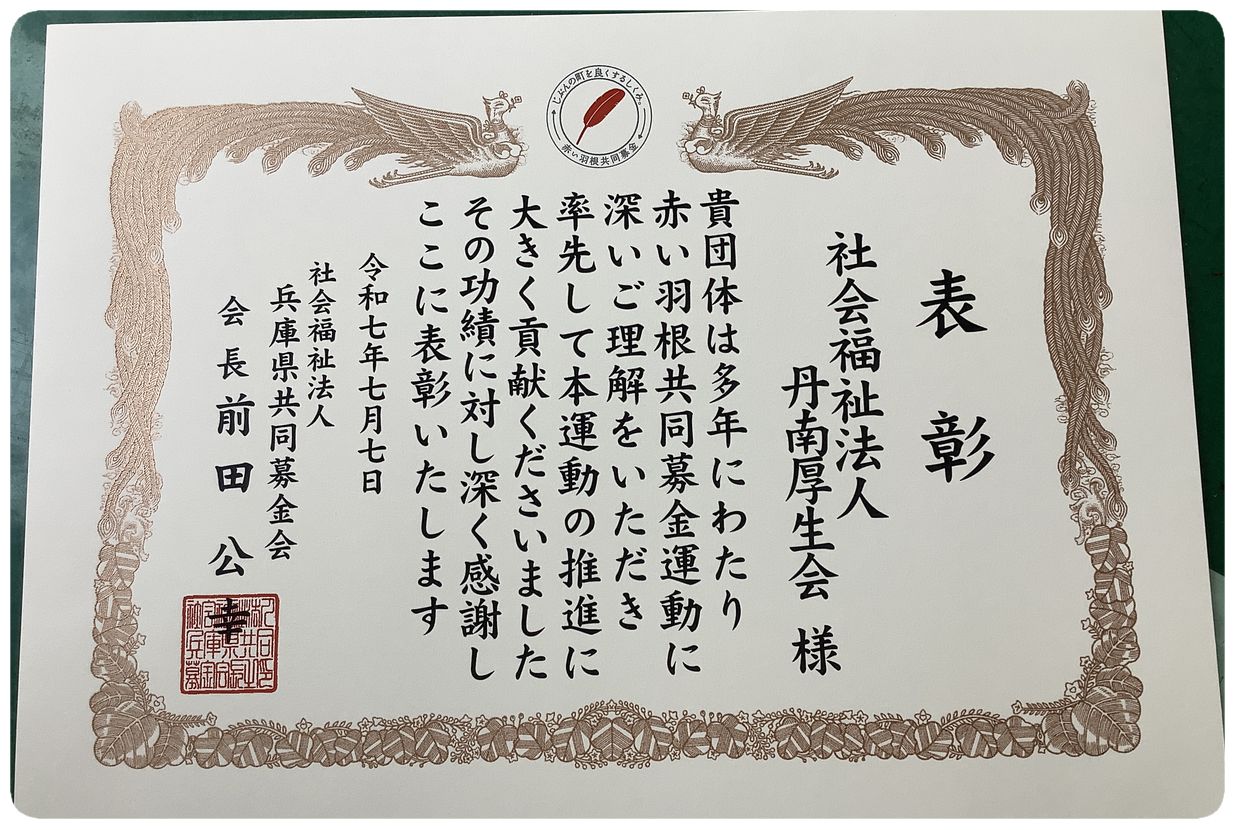 じぶんの町を良くするしくみ。
赤い羽根共同募金
表彰
社会福祉法人
丹南厚生会 様
貴団体は多年にわたり
赤い羽根共同募金運動に
深いご理解をいただき
率先して本運動の推進に
大きく貢献くださいました
その功績に対し深く感謝し
ここに表彰いたします
令和七年七月七日
社会福祉法人
兵庫県共同募金会
会長 前田公幸